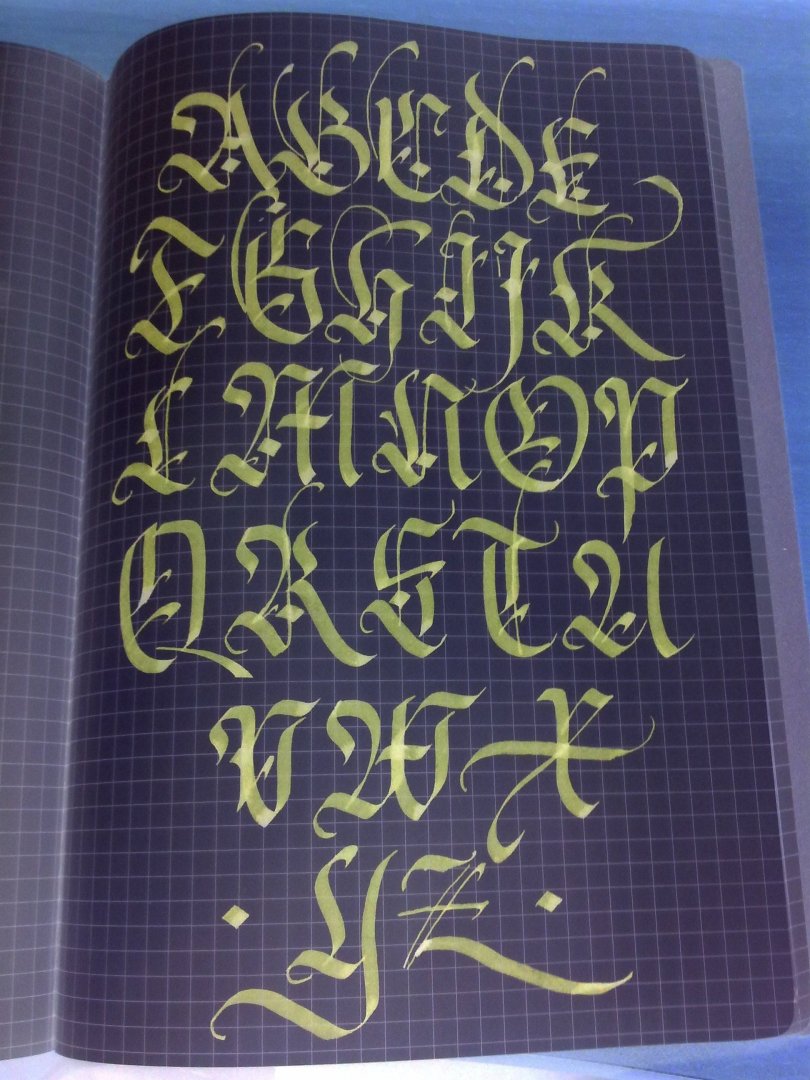 ABCDE
FGHIJK
LMNOP
QRSTU
VWX
· YZ ·